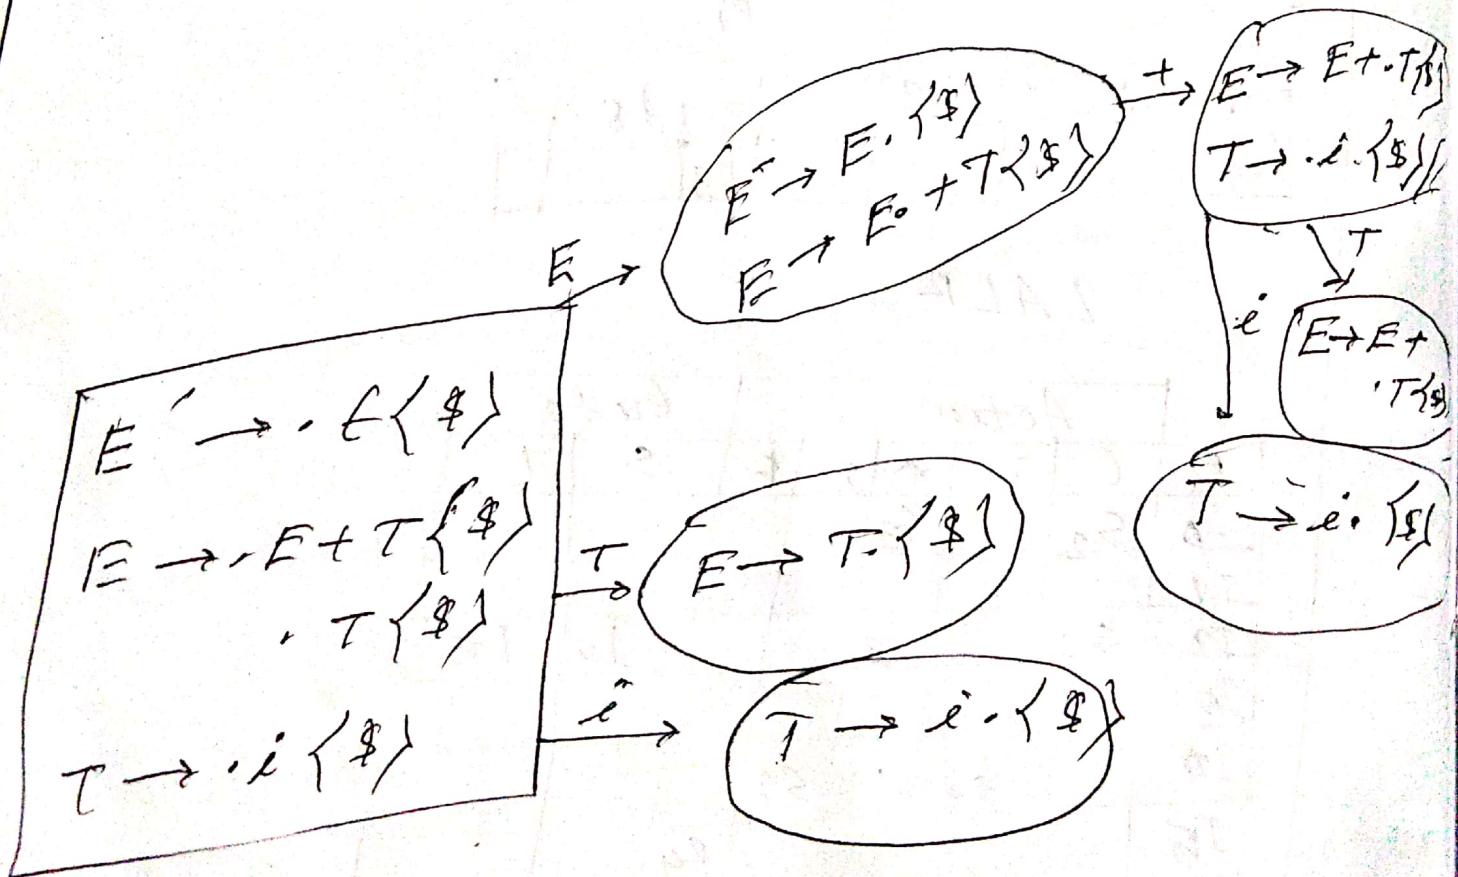 E' → . E {$}
E → . E + T {$}
. T {$}
T → . i {$}
E
E' → E . {$}
E → E . + T {$}
T
E → T . {$}
i
T → i . {$}
+
E → E + . T {$}
T → . i . {$}
T
E → E +
. T {$}
i
T → i . {$}